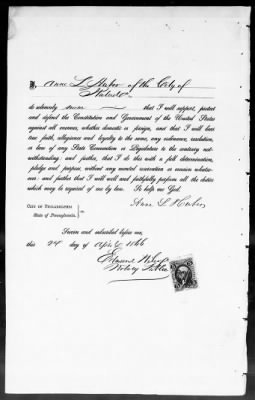 I, Anne L. Huber of the City of
do solemnly swear that I will support, protect
and defend the Constitution and Government of the United States
against all enemies, whether domestic or foreign, and that I will bear
true faith, allegiance and loyalty to the same, any ordinance, resolution,
or law of any State Convention or Legislature to the contrary not-
withstanding; and further, that I do this with a full determination,
pledge and purpose, without any mental reservation or evasion whatso-
ever: and further that I will well and faithfully perform all the duties
which may be required of me by law. So help me God.
Anne L Huber
CITY OF PHILADELPHIA
State of Pennsylvania. ss.
Sworn and subscribed before me,
this 24 day of April 1866
Notary Public